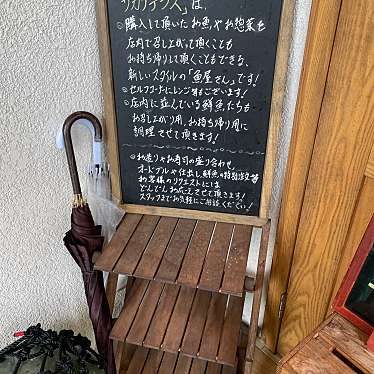 サカナックス」は、
◎購入して頂いたお魚やお惣菜を
店内で召し上がって頂くことも
お持ち帰りして頂くこともできる、
新しいスタイルの「魚屋さん」です!
◎セルフコーナーにレンジ有もございます!
◎店内に並んでいる鮮魚たちも
お召し上がり用、お持ち帰り用に
調理させて頂きます!
◎お造りやお寿司の盛り合わせ、
オードブルや仕出し、鮮魚の特別注文等
お客様のリクエストには
どんどんお応えさせて頂きます!
スタッフまでお気軽にご相談ください!